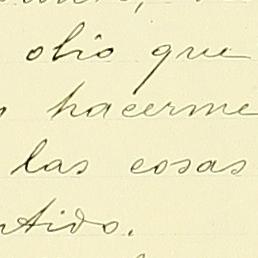 olio que
hacerme
las cosas
ntido.